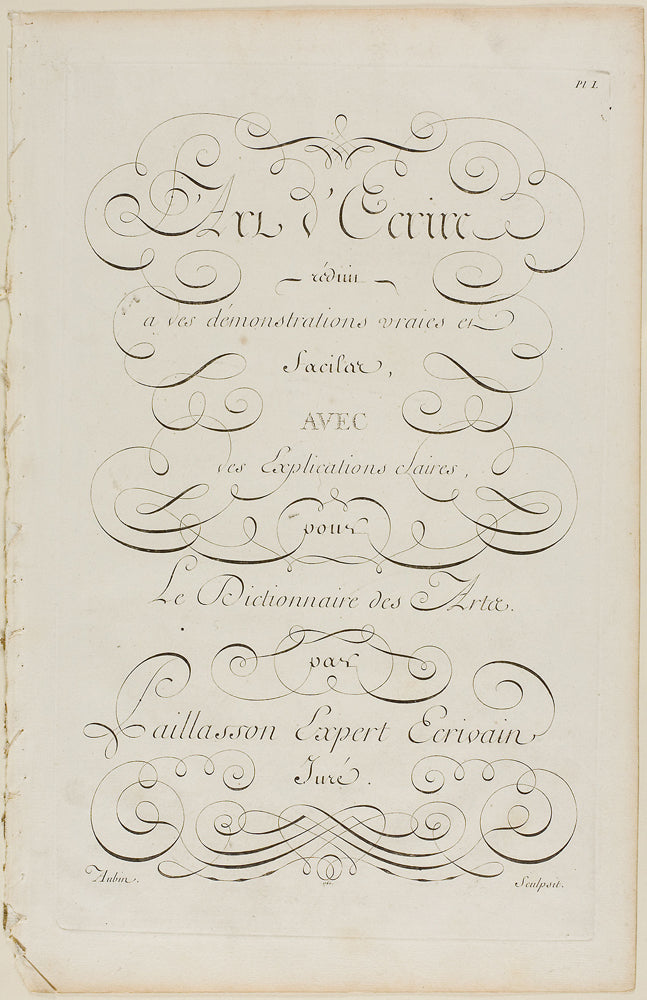 Pl I.
L'Art d'Ecrire
réduit
a des démonstrations vraies et
faciles,
AVEC
des Explications claires,
pour
Le Dictionnaire des Arts.
par
Paillasson Expert Ecrivain
Juré.
Aubin.
Sculpsit.